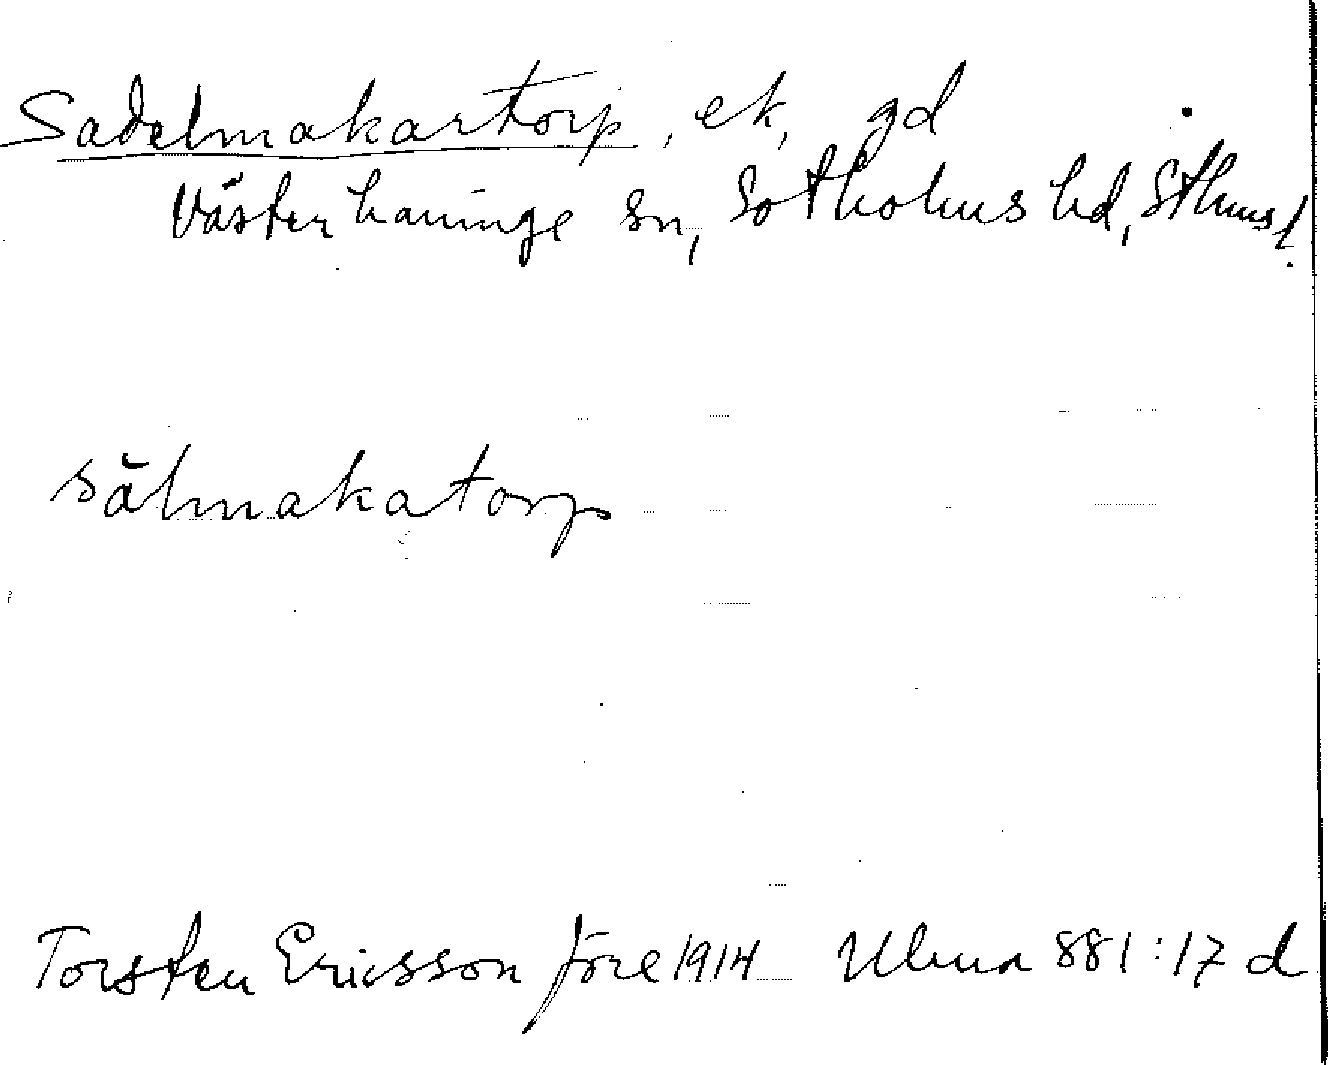 Sadelmakartorp, ek, gd
Västerhaninge sn, Sotholms hd, Sthms l.
sălmakatorp
Torsten Ericsson före 1914 Ulma 881:17 d